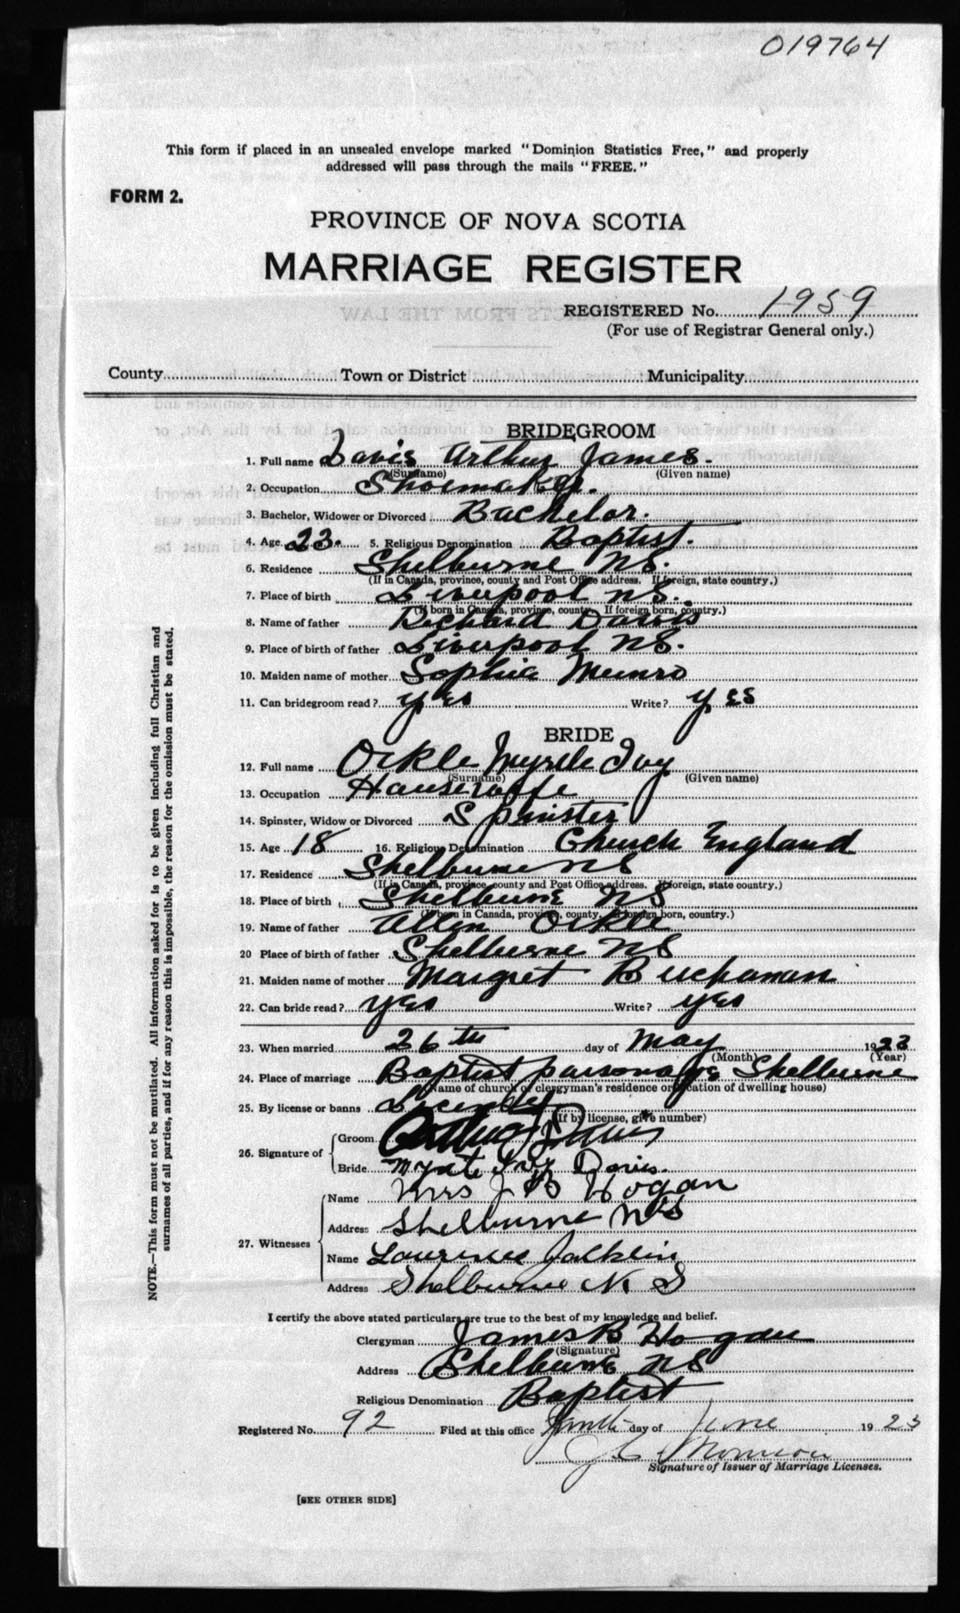 019764
This form if placed in an unsealed envelope marked "Dominion Statistics Free," and properly
addressed will pass through the mails "FREE."
FORM 2.
PROVINCE OF NOVA SCOTIA
MARRIAGE REGISTER
REGISTERED No. 1959
(For use of Registrar General only.)
County Town or District Municipality
BRIDEGROOM
1. Full name Davis Arthur James.
(Surname) (Given name)
2. Occupation Shoemaker.
3. Bachelor, Widower or Divorced Bachelor.
4. Age 23. 5. Religious Denomination Baptist.
6. Residence Shelburne NS.
(If in Canada, province, county and Post Office address. If foreign, state country.)
7. Place of birth Liverpool NS.
(If born in Canada, province, county. If foreign born, country.)
8. Name of father Richard Davis
9. Place of birth of father Liverpool NS.
10. Maiden name of mother Sophie Munro
11. Can bridegroom read? yes Write? yes
BRIDE
12. Full name Orkle Myrtle Ivy
(Surname) (Given name)
13. Occupation Housewife
14. Spinster, Widow or Divorced Spinster
15. Age 18 16. Religious Denomination Church England
17. Residence Shelburne NS
(If in Canada, province, county and Post Office address. If foreign, state country.)
18. Place of birth Shelburne NS
(If born in Canada, province, county. If foreign born, country.)
19. Name of father Allen Orkle
20 Place of birth of father Shelburne NS
21. Maiden name of mother Margret Buchanan
22. Can bride read? yes Write? yes
23. When married 26th day of May 1923
(Month) (Year)
24. Place of marriage Baptist parsonage Shelburne
(Name of church or clergyman's residence or location of dwelling house)
25. By license or banns
(If by license, give number)
26. Signature of Groom Arthur J Davis
Bride Ivy Davis.
27. Witnesses Name Mrs J B Hogan
Address Shelburne NS
Name Laurence
Address Shelburne N. S
I certify the above stated particulars are true to the best of my knowledge and belief.
Clergyman James B Hogan
(Signature)
Address Shelburne NS
Religious Denomination Baptist
Registered No. 92 Filed at this office day of June 1923
Signature of Issuer of Marriage Licenses.
[SEE OTHER SIDE]
NOTE.—This form must not be mutilated. All information asked for is to be given including full Christian and
surnames of all parties, and if for any reason this is impossible, the reason for the omission must be stated.